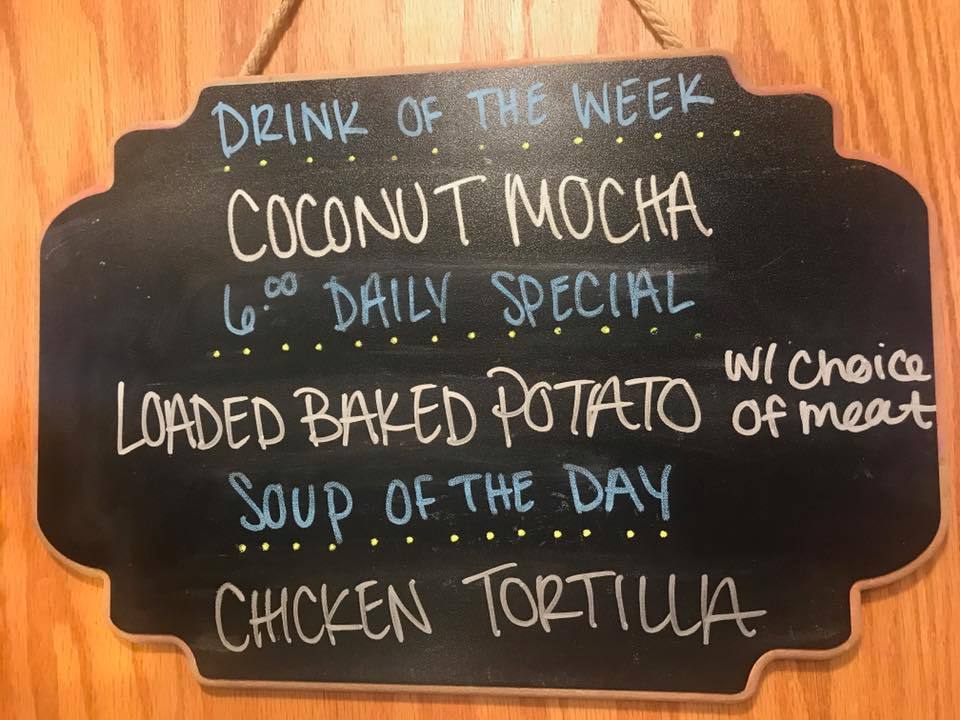 DRINK OF THE WEEK
COCONUT MOCHA
6.00 DAILY SPECIAL
LOADED BAKED POTATO w/ choice of meat
SOUP OF THE DAY
CHICKEN TORTILLA